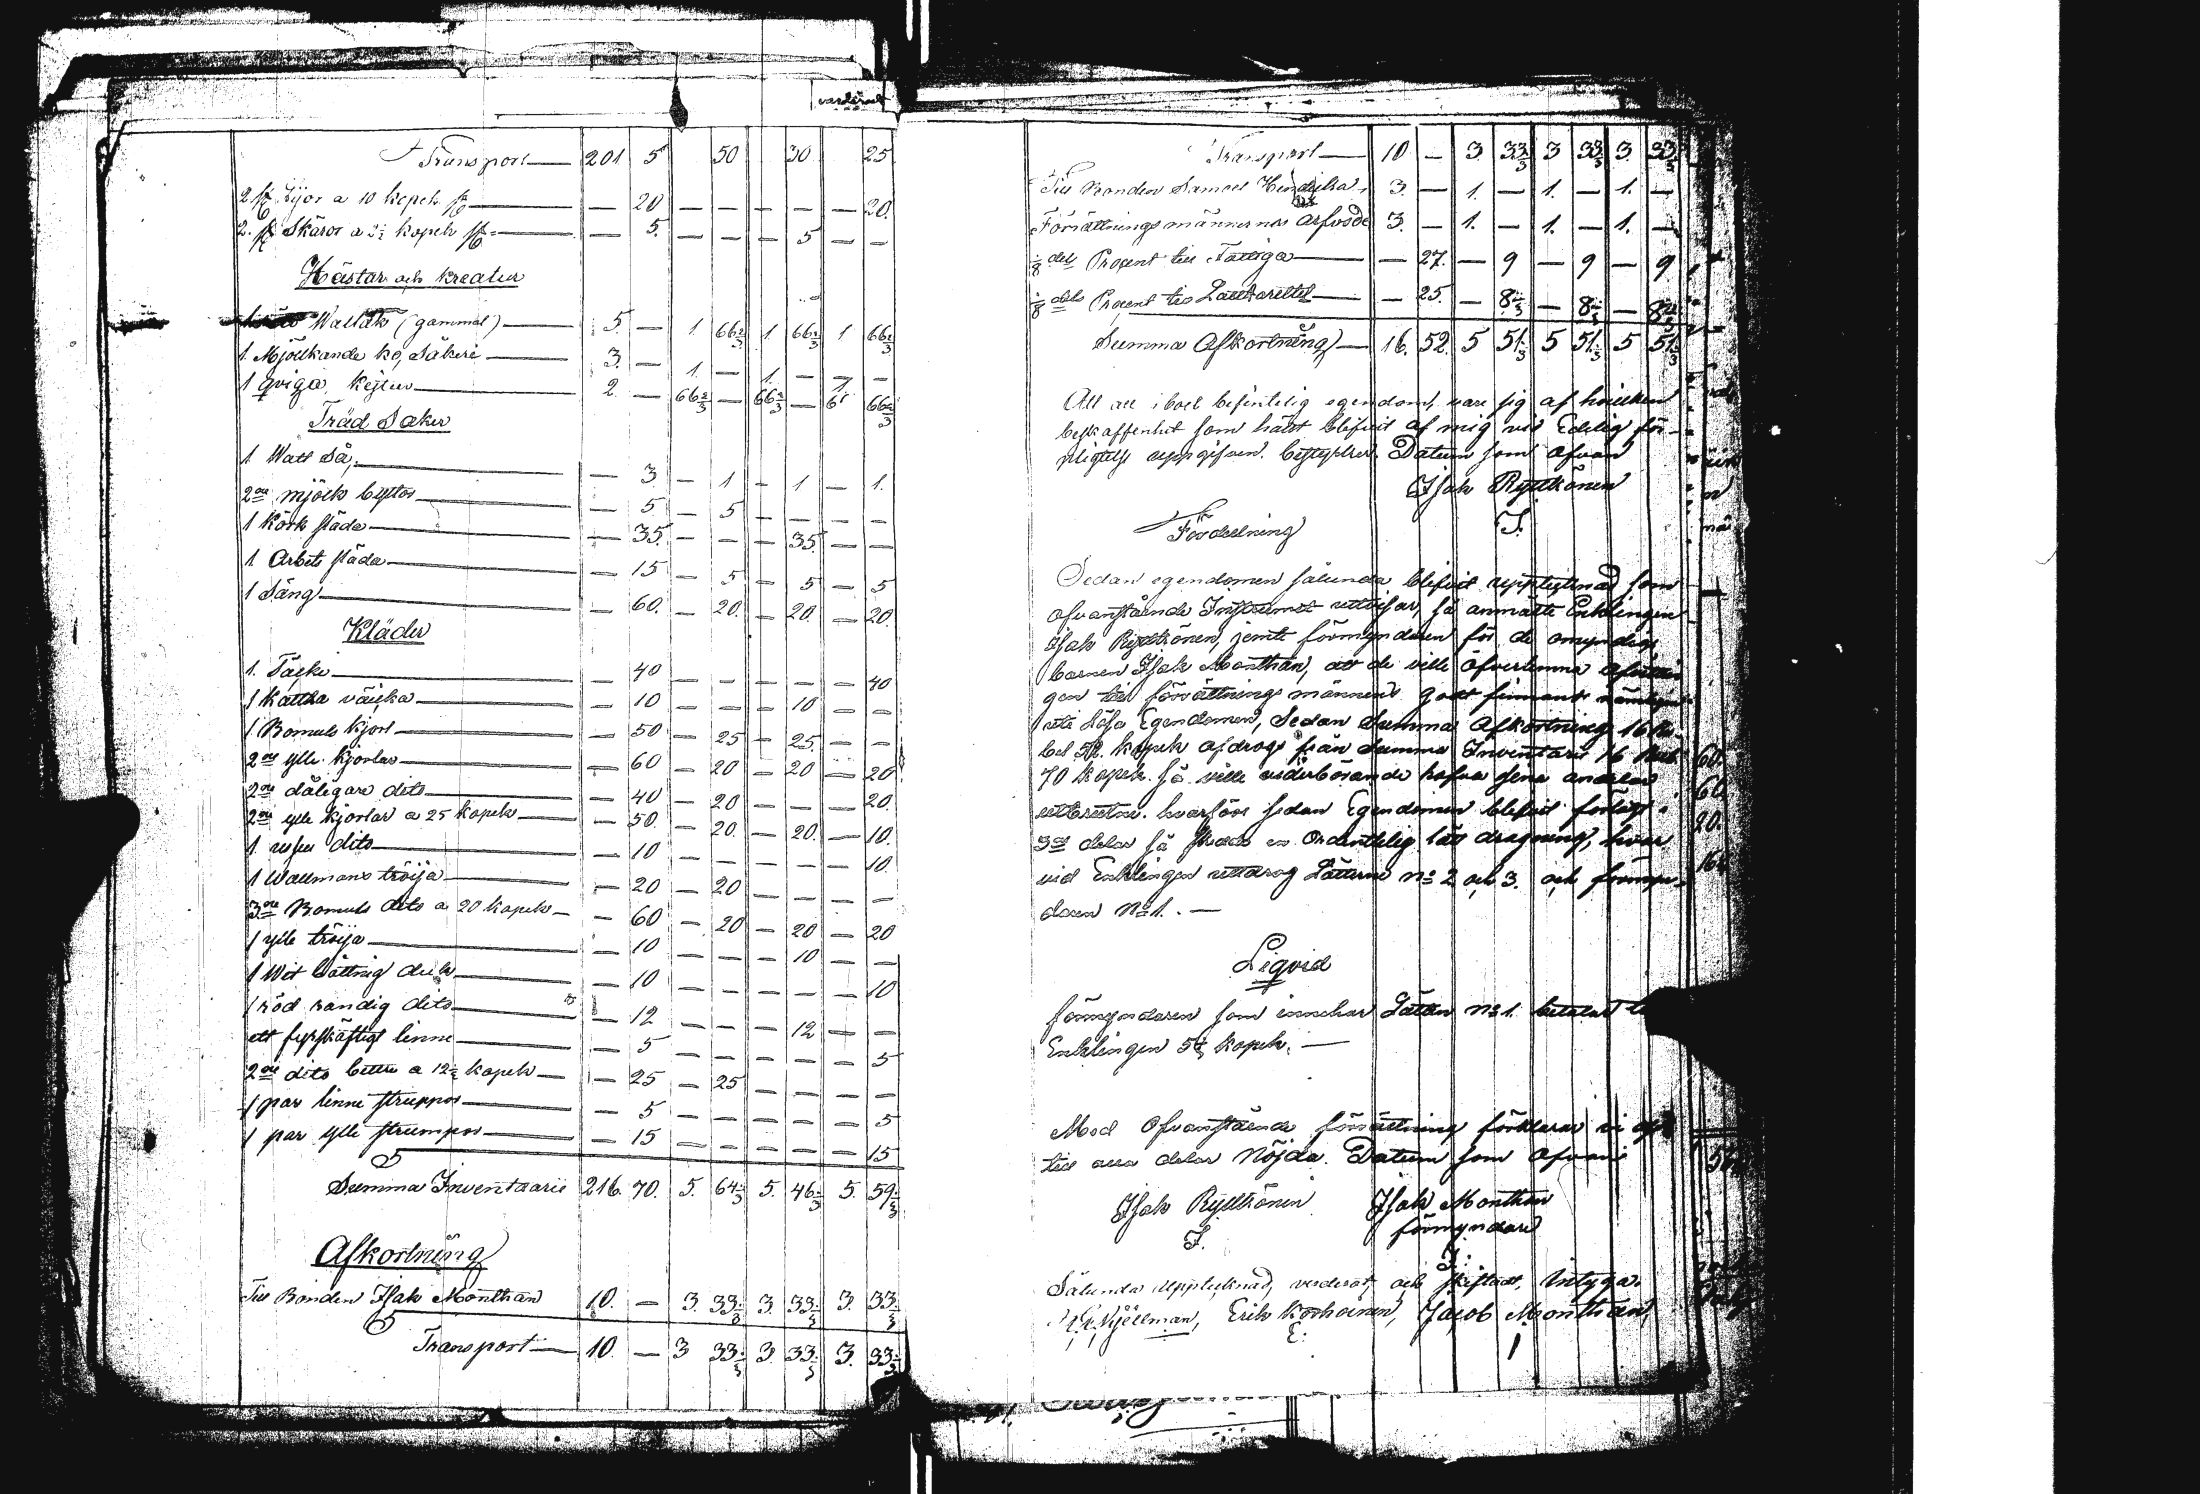 värderad
Transport — 201 5 50 30 25
2 st Lijor a 10 kopek st — — 20 — — — — — 20.
2. st Skäror a 2½ kopek st — — 5. — — — 5 — —
Hästar och kreatur
Wallak (gammal) — 5. — 1 66⅔ 1 66⅔ 1 66⅔
1. Mjölkande ko, Säkeri — 3. — 1. — 1. — 1. —
1 qviga, — 2. — 66⅔ — 66⅔ — 66⅔
Träd Saker
1 Watt Så — — 3 — 1 — 1 — 1.
2ne mjölk byttor — — 5 — 5 — — — —
1 Körk släda — — 35. — — — 35. — —
1 Arbets släda — — 15 — 5 — 5 — 5
1 Säng — — 60. — 20. — 20. — 20.
Kläder
1. Täcke — — 40 — — — — — 40
1 — 10 — — — 10 — —
1 Bomuls kjorl — — 50 — 25 — 25. — —
2ne ylle kjorlar — — 60 — 20 — 20 — 20
2ne dåligare dito — — 40 — 20 — — — 20.
2ne ylle kjorlar a 25 kopek — — 50. — 20. — 20. — 10.
1 dito — — 10 — — — — — 10.
1 Wallmans tröija — — 20 — 20 — — — —
3ne Bomuls dito a 20 kopek — — 60 — 20 — 20 — 20
1 ylle tröija — — 10 — — — 10 — —
1 Wit duk — — 10 — — — — — 10
1 röd randig dito — — 12 — — — 12 — —
ett fyrskäftigt linne — — 5 — — — — — 5
2ne dito a 12½ kopek — — 25 — 25 — — — —
1 par linne strumpor — — 5 — — — — — 5
1 par ylle strumpor — — 15 — — — — — 15
Summa Inventarii 216. 70. 5. 64⅓ 5. 46⅓ 5. 59⅓
Afkortning
Till Bonden Isak Monthan 10. — 3. 33⅓ 3. 33⅓ 3. 33⅓
Transport — 10. — 3 33⅓ 3. 33⅓ 3. 33⅓
Transport — 10 — 3 33⅓ 3 33⅓ 3. 33⅓
Till Bonden Samuel 3. — 1. — 1. — 1. —
Förrättnings männernes arfvode 3. — 1. — 1. — 1. —
⅛ dels Procent till Fattiga — — 27. — 9 — 9 — 9
⅛ dels Procent till — — 25. — 8⅓ — 8⅓ — 8⅓
Summa Afkortning — 16. 52. 5 51⅓ 5 51⅓ 5 51⅓
Att all i boet befintelig egendom, vare sig af hvilken
beskaffenhet som hälst blifvit af mig vid Edelig för-
pligtelse uppgifven. Datum som ofvan
Isak Ryttkönen
I.
Fördellning
Sedan egendomen sålunda blifvit uppteknad som
ofvanstående utvisar, så anmälte Enklingen
Isak Ryttkönen, jemte förmyndaren för de omyndiga
barnen Isak Monthan, att de ville öfverlemna
gen till förrättnings männens godt finnande
Egendomen, Sedan Summa Afkortning 16 Ru-
bel 52. kopek afdrogs från Summa Inventarii 16 Rub
70 kopek. så ville vederbörande hafva sina andelar
hvarföre sedan Egendomen blifvit
3ne delar så en Ordentlig lått dragning, hvar
vid Enklingen utdrog Låtterne No 2 och 3. och förmyn-
daren No 1. —
Liqvid
förmyndaren som innehar Låtten No 1. betalar
Enklingen 5⅓ kopek. —
Med Ofvanstående förrättning förklarar vi oss
till alla delar Nöjda. Datum som Ofvan
Isak Ryttkönen Isak Monthan
I. förmyndare
I.
Sålunda uppteknad, verderat, och skiftadt, Intyga.
Kjellman, Erik Korhoinen, Jacob Monthan,
E.